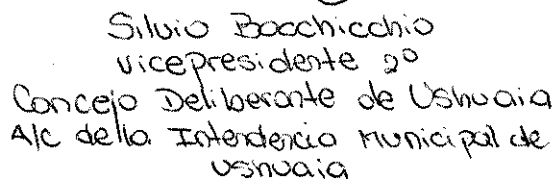 Silvio Bocchicchio
vicepresidente 2º
Concejo Deliberante de Ushuaia
A/C de la Intendencia Municipal de
Ushuaia